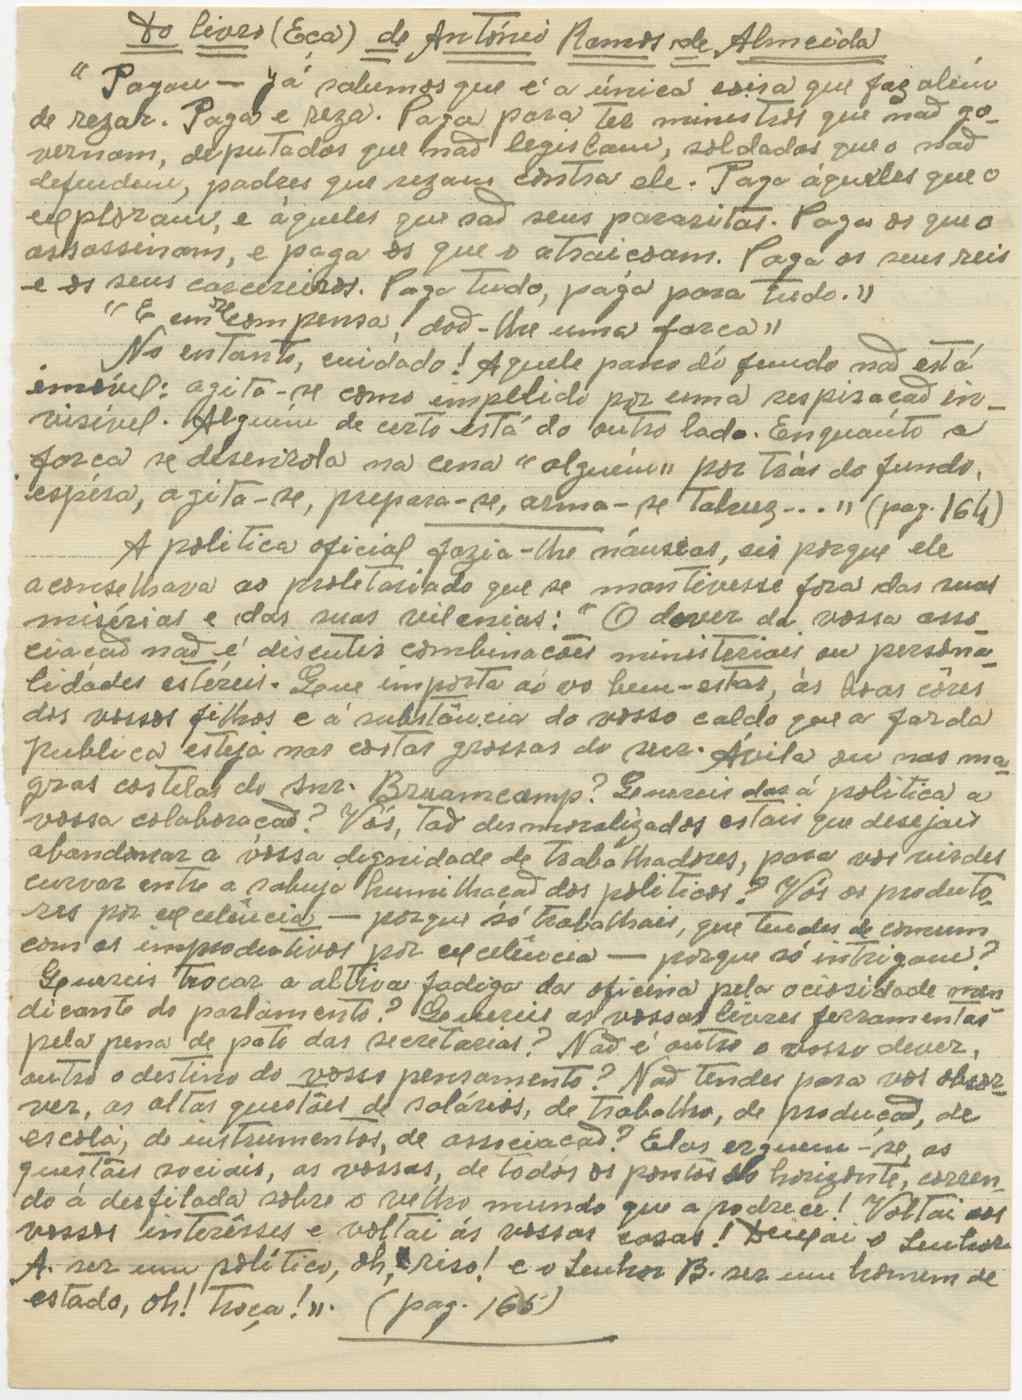 Do livro (Eça) de António Ramos de Almeida
"Pagou — já sabemos que é a única coisa que faz além
de rezar. Paga e reza. Paga para ter ministros que não go-
vernam, deputados que não legislam, soldados que o não
defendem, padres que rezam contra ele. Paga àqueles que o
exploram, e àqueles que são seus parasitas. Paga os que o
assassinam, e paga os que o atraiçoam. Paga os seus reis
e os seus carcereiros. Paga tudo, paga para tudo."
"E em recompensa, dão-lhe uma farça"
No entanto, cuidado! Aquele pano do fundo não está
imóvel: agita-se como impelido por uma respiração in-
visível. Alguém de certo está do outro lado. Enquanto a
farça se desenrola na cena "alguém" por trás do fundo,
espéra, agita-se, prepara-se, arma-se talvez..." (pag. 164)
A politica oficial fazia-lhe náuseas, eis porque ele
aconselhava ao proletariado que se mantivesse fora das suas
misérias e das suas vilenias: "O dever da vossa asso
ciação não é discutir combinações ministeriais ou persona-
lidádes estéreis. Que importa ao vo bem-estar, às boas côres
dos vossos filhos e á substância do vosso caldo que a farda
publica esteja nas costas grossas do snr. Ávila ou nas ma-
gras costelas do snr. Braamcamp? Quereis dar á politica a
vossa colaboração? Vós, tão desmoralizados estais que desejais
abandonar a vossa dignidade de trabalhadores, para vos virdes
curvar entre a sabuja humilhação dos politicos? Vós os produto-
res por excelência — porque só trabalhais, que tendes de comum
com os improdutivos por excelência — porque só intrigam?
Quereis trocar a altiva fadiga da oficina pela ociosidade men
dicante do parlamento? Quereis as vossas livres ferramentas
pela pena de pato das secretarias? Não é outro o vosso dever,
outro o destino do vosso pensamento? Não tendes para vos absor-
ver, as altas questões de salários, de trabalho, de produção, de
escola, de instrumentos, de associação? Elas erguem-se, as
questões sociais, as vossas, de todos os pontos do horizonte, corren-
do à desfilada sobre o velho mundo que apodrece! Voltai aos
vossos interêsses e voltai ás vossas casas! Deixai o Senhor
A. ser um político, oh, riso! e o Senhor B. ser um homem de
estado, oh! troça!". (pag. 165)